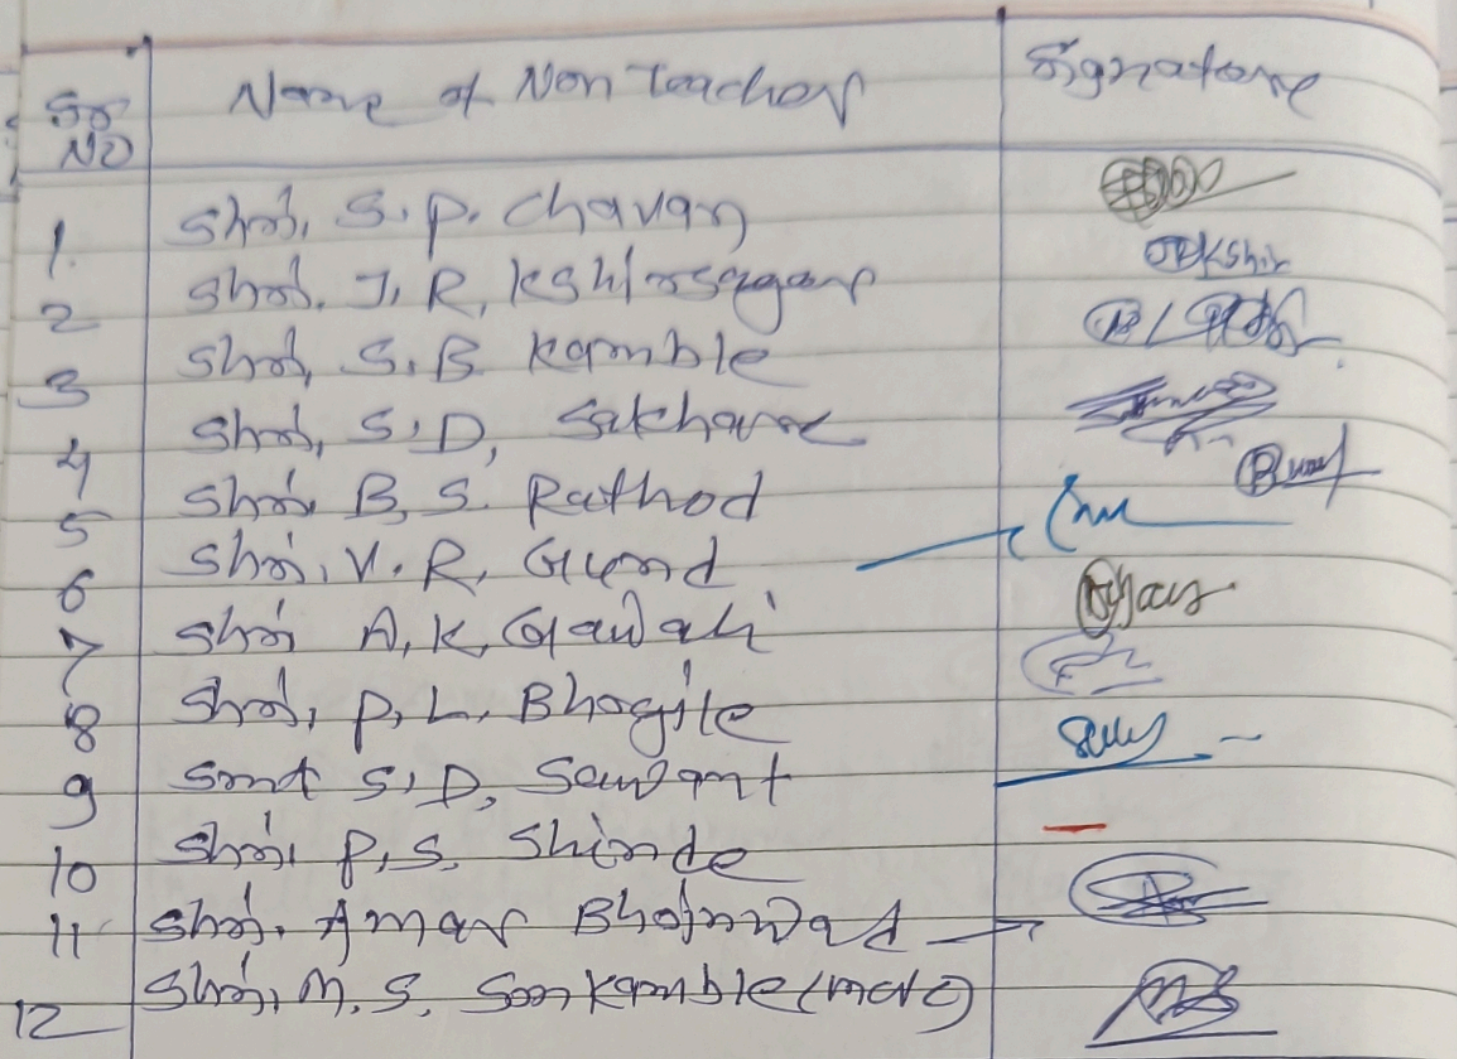 Sr NO Name of Non Teacher Signature
1. Shri, S. P. Chavan
2 Shri. J. R. Kshirsagar
3 Shri, S. B. Kamble
4 Shri, S. D, Sakhare
5 Shri. B, S. Rathod
6 Shri, V. R, Gund
7 Shri A, K, Gawali
8 Shri, P, L, Bhogile
9 Smt S, D, Sawant
10 Shri, P, S, Shinde
11 Shri. Amar
12 Shri, M. S, Sonkamble